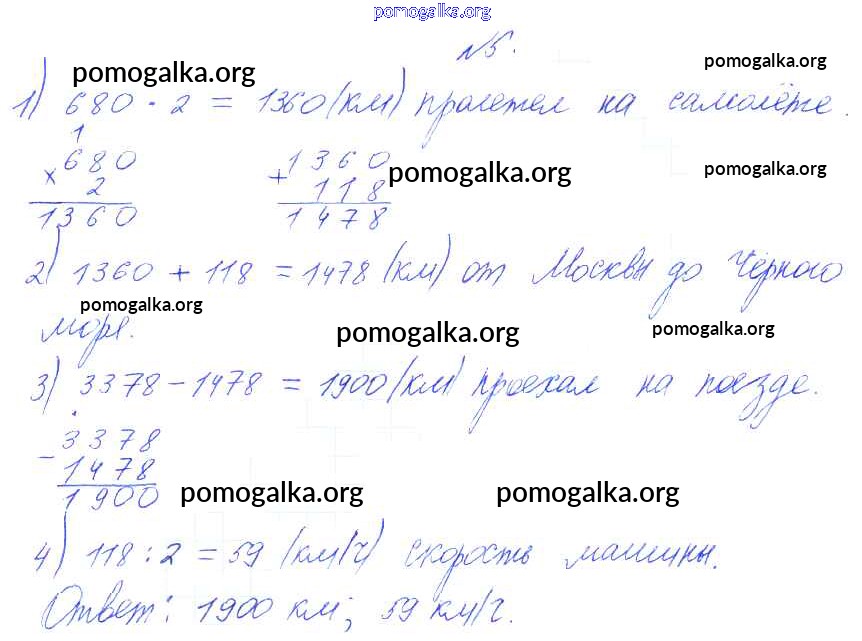 pomogalka.org
№5.
pomogalka.org pomogalka.org
1) 680 · 2 = 1360 (км) пролетел на самолёте.
1
× 680 + 1360 pomogalka.org pomogalka.org
2 118
1360 1478
2) 1360 + 118 = 1478 (км) от Москвы до Чёрного
pomogalka.org
моря. pomogalka.org pomogalka.org
3) 3378 - 1478 = 1900 (км) проехал на поезде.
- 3378
1478
1900 pomogalka.org pomogalka.org
4) 118 : 2 = 59 (км/ч) скорость машины.
Ответ: 1900 км; 59 км/г.